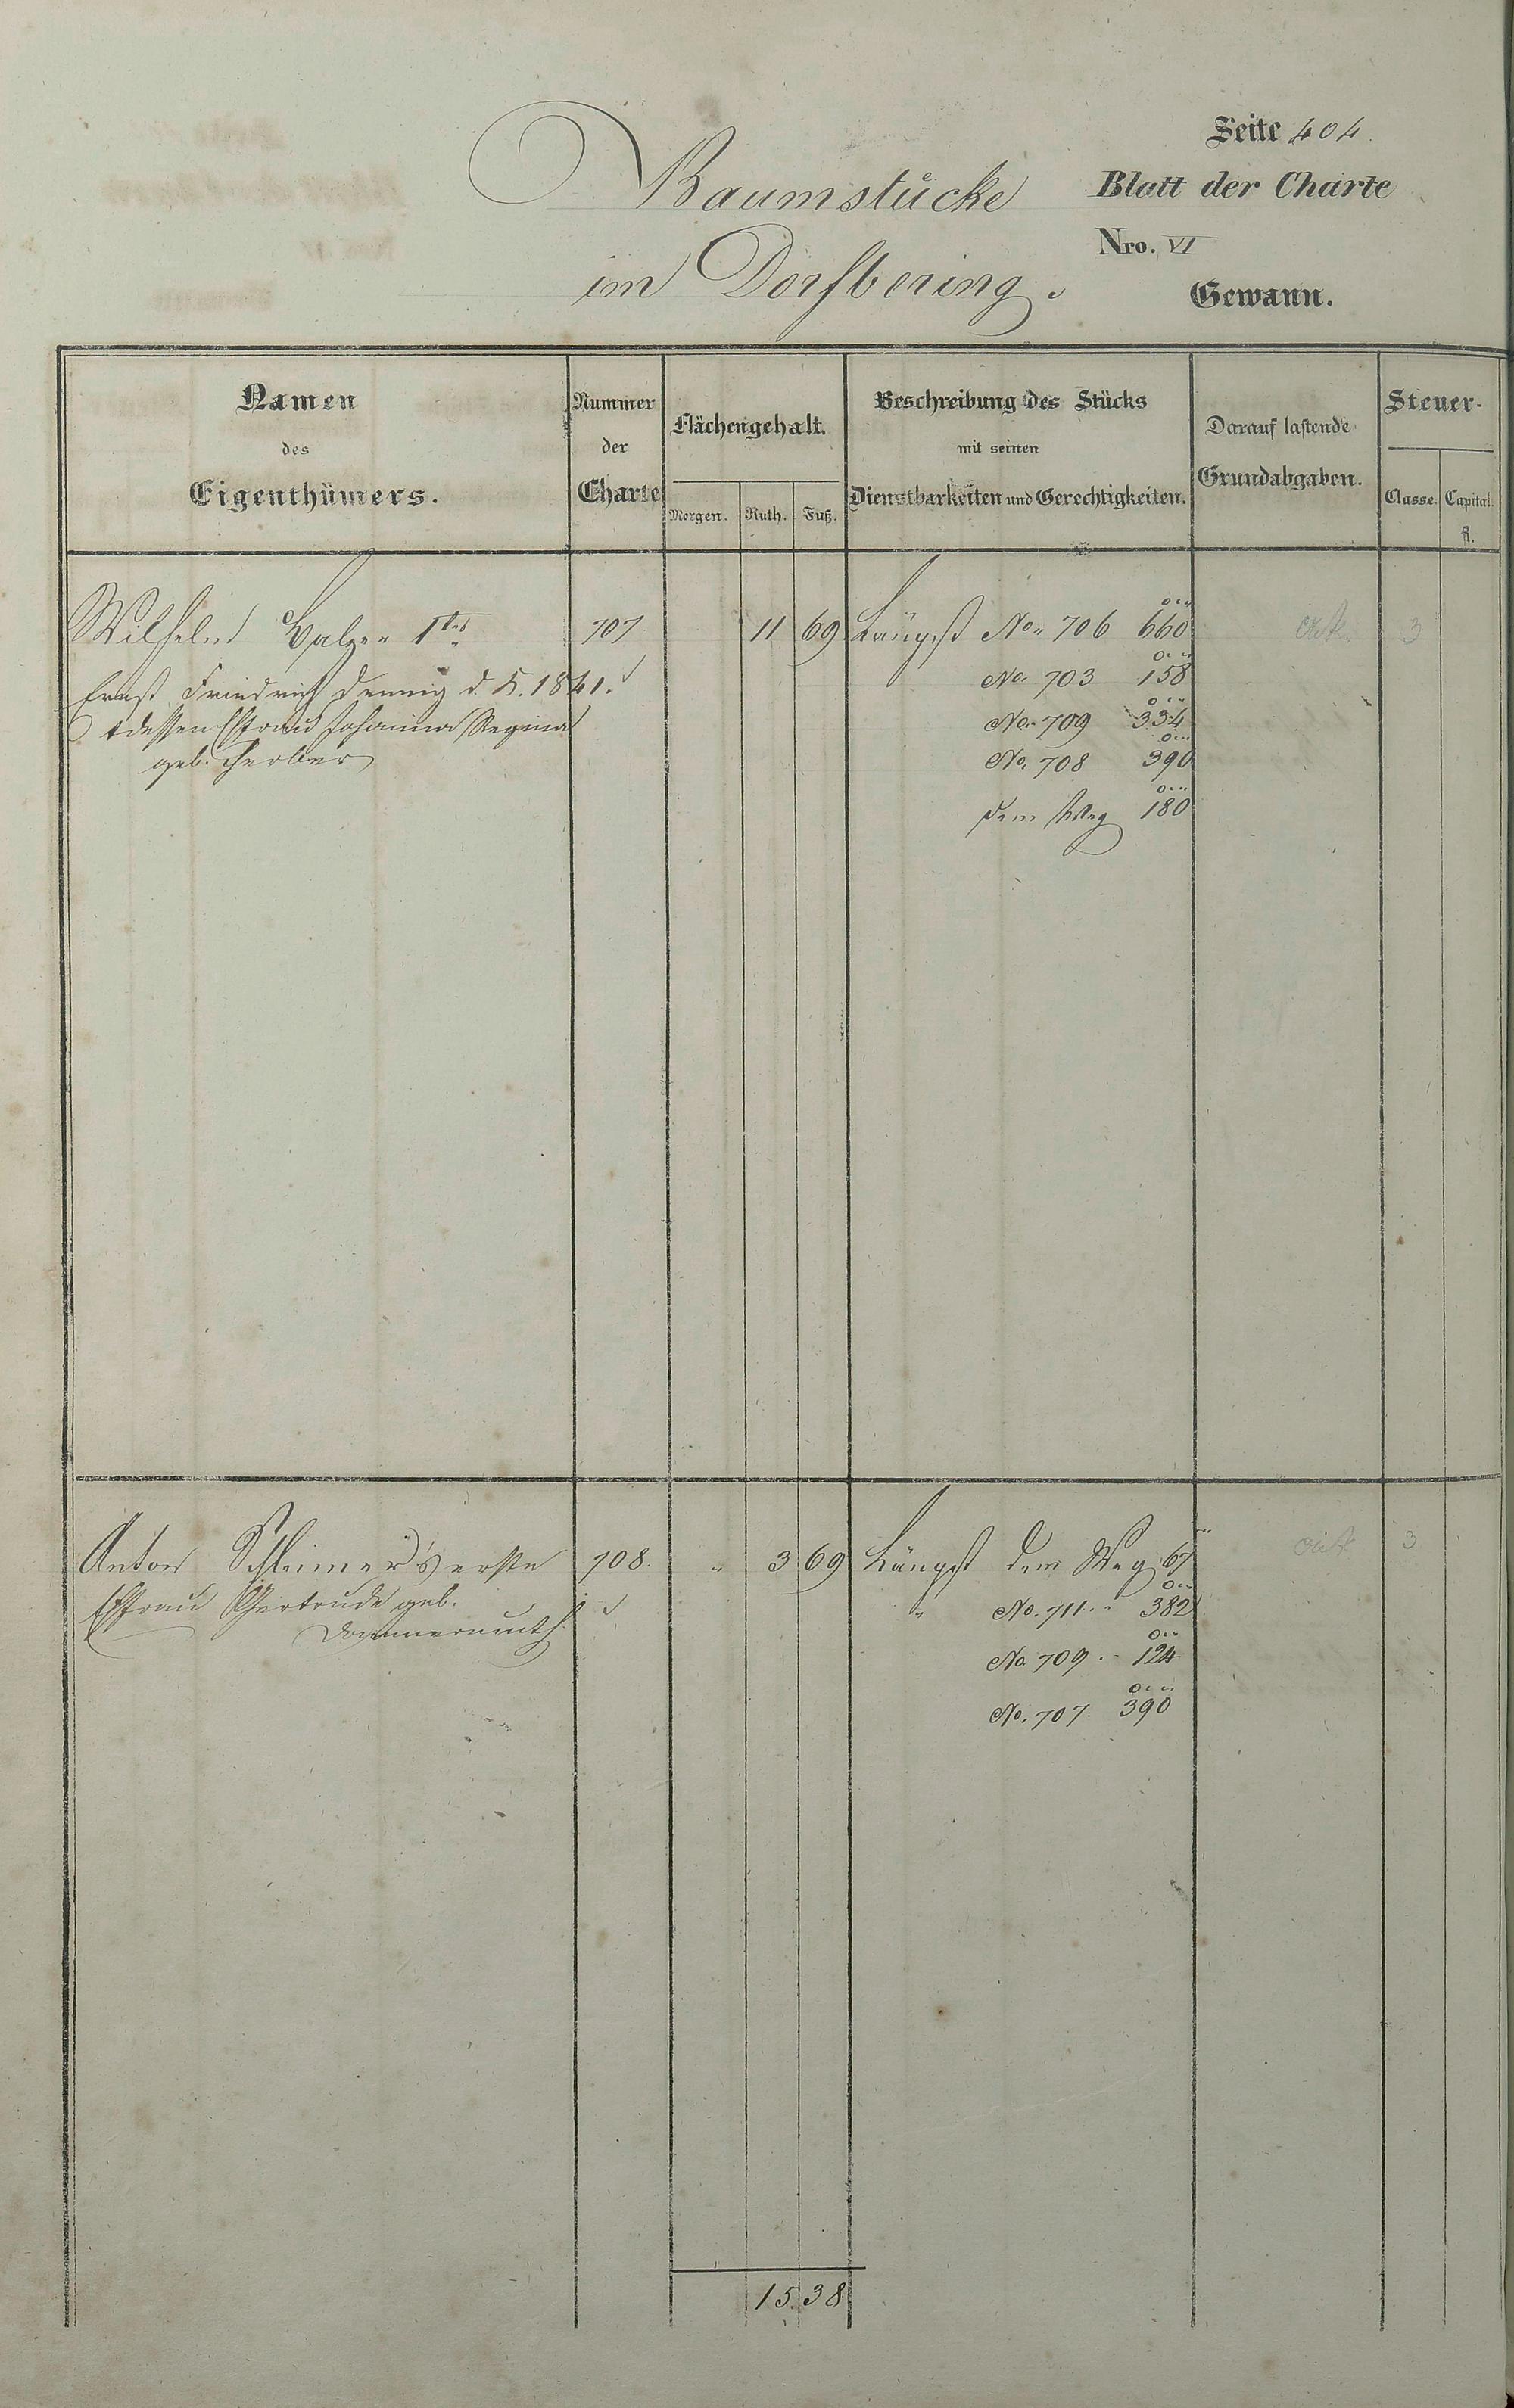 Seite 404.
Baumstücke
Blatt der Charte
Nro. VI
im Dorfbering.
Gewann.
Namen
des
Eigenthümers.
Nummer
der
Charte
Flächengehalt.
Morgen. Ruth. Fuß.
Beschreibung des Stücks
mit seinen
Dienstbarkeiten und Gerechtigkeiten.
Darauf lastende
Grundabgaben.
Steuer-
Classe. Capital.
fl.
Wilhelm Balzer 1ter 707 11 69 Längst No. 706 660 3
Ernst Friedrich Dennig d. K. 1841. No. 703 158
& dessen Ehfrau Johanna Regina No. 709 334
geb. Ferber No. 708 390
dem Weg 180
Anton Schleimer's erste 708. " 3 69 Längst dem Weg 67 3
Ehfrau Gertrude geb. " No. 711. " 382
Dommermuth.
No. 709. " 124
No. 707. 390
15.38